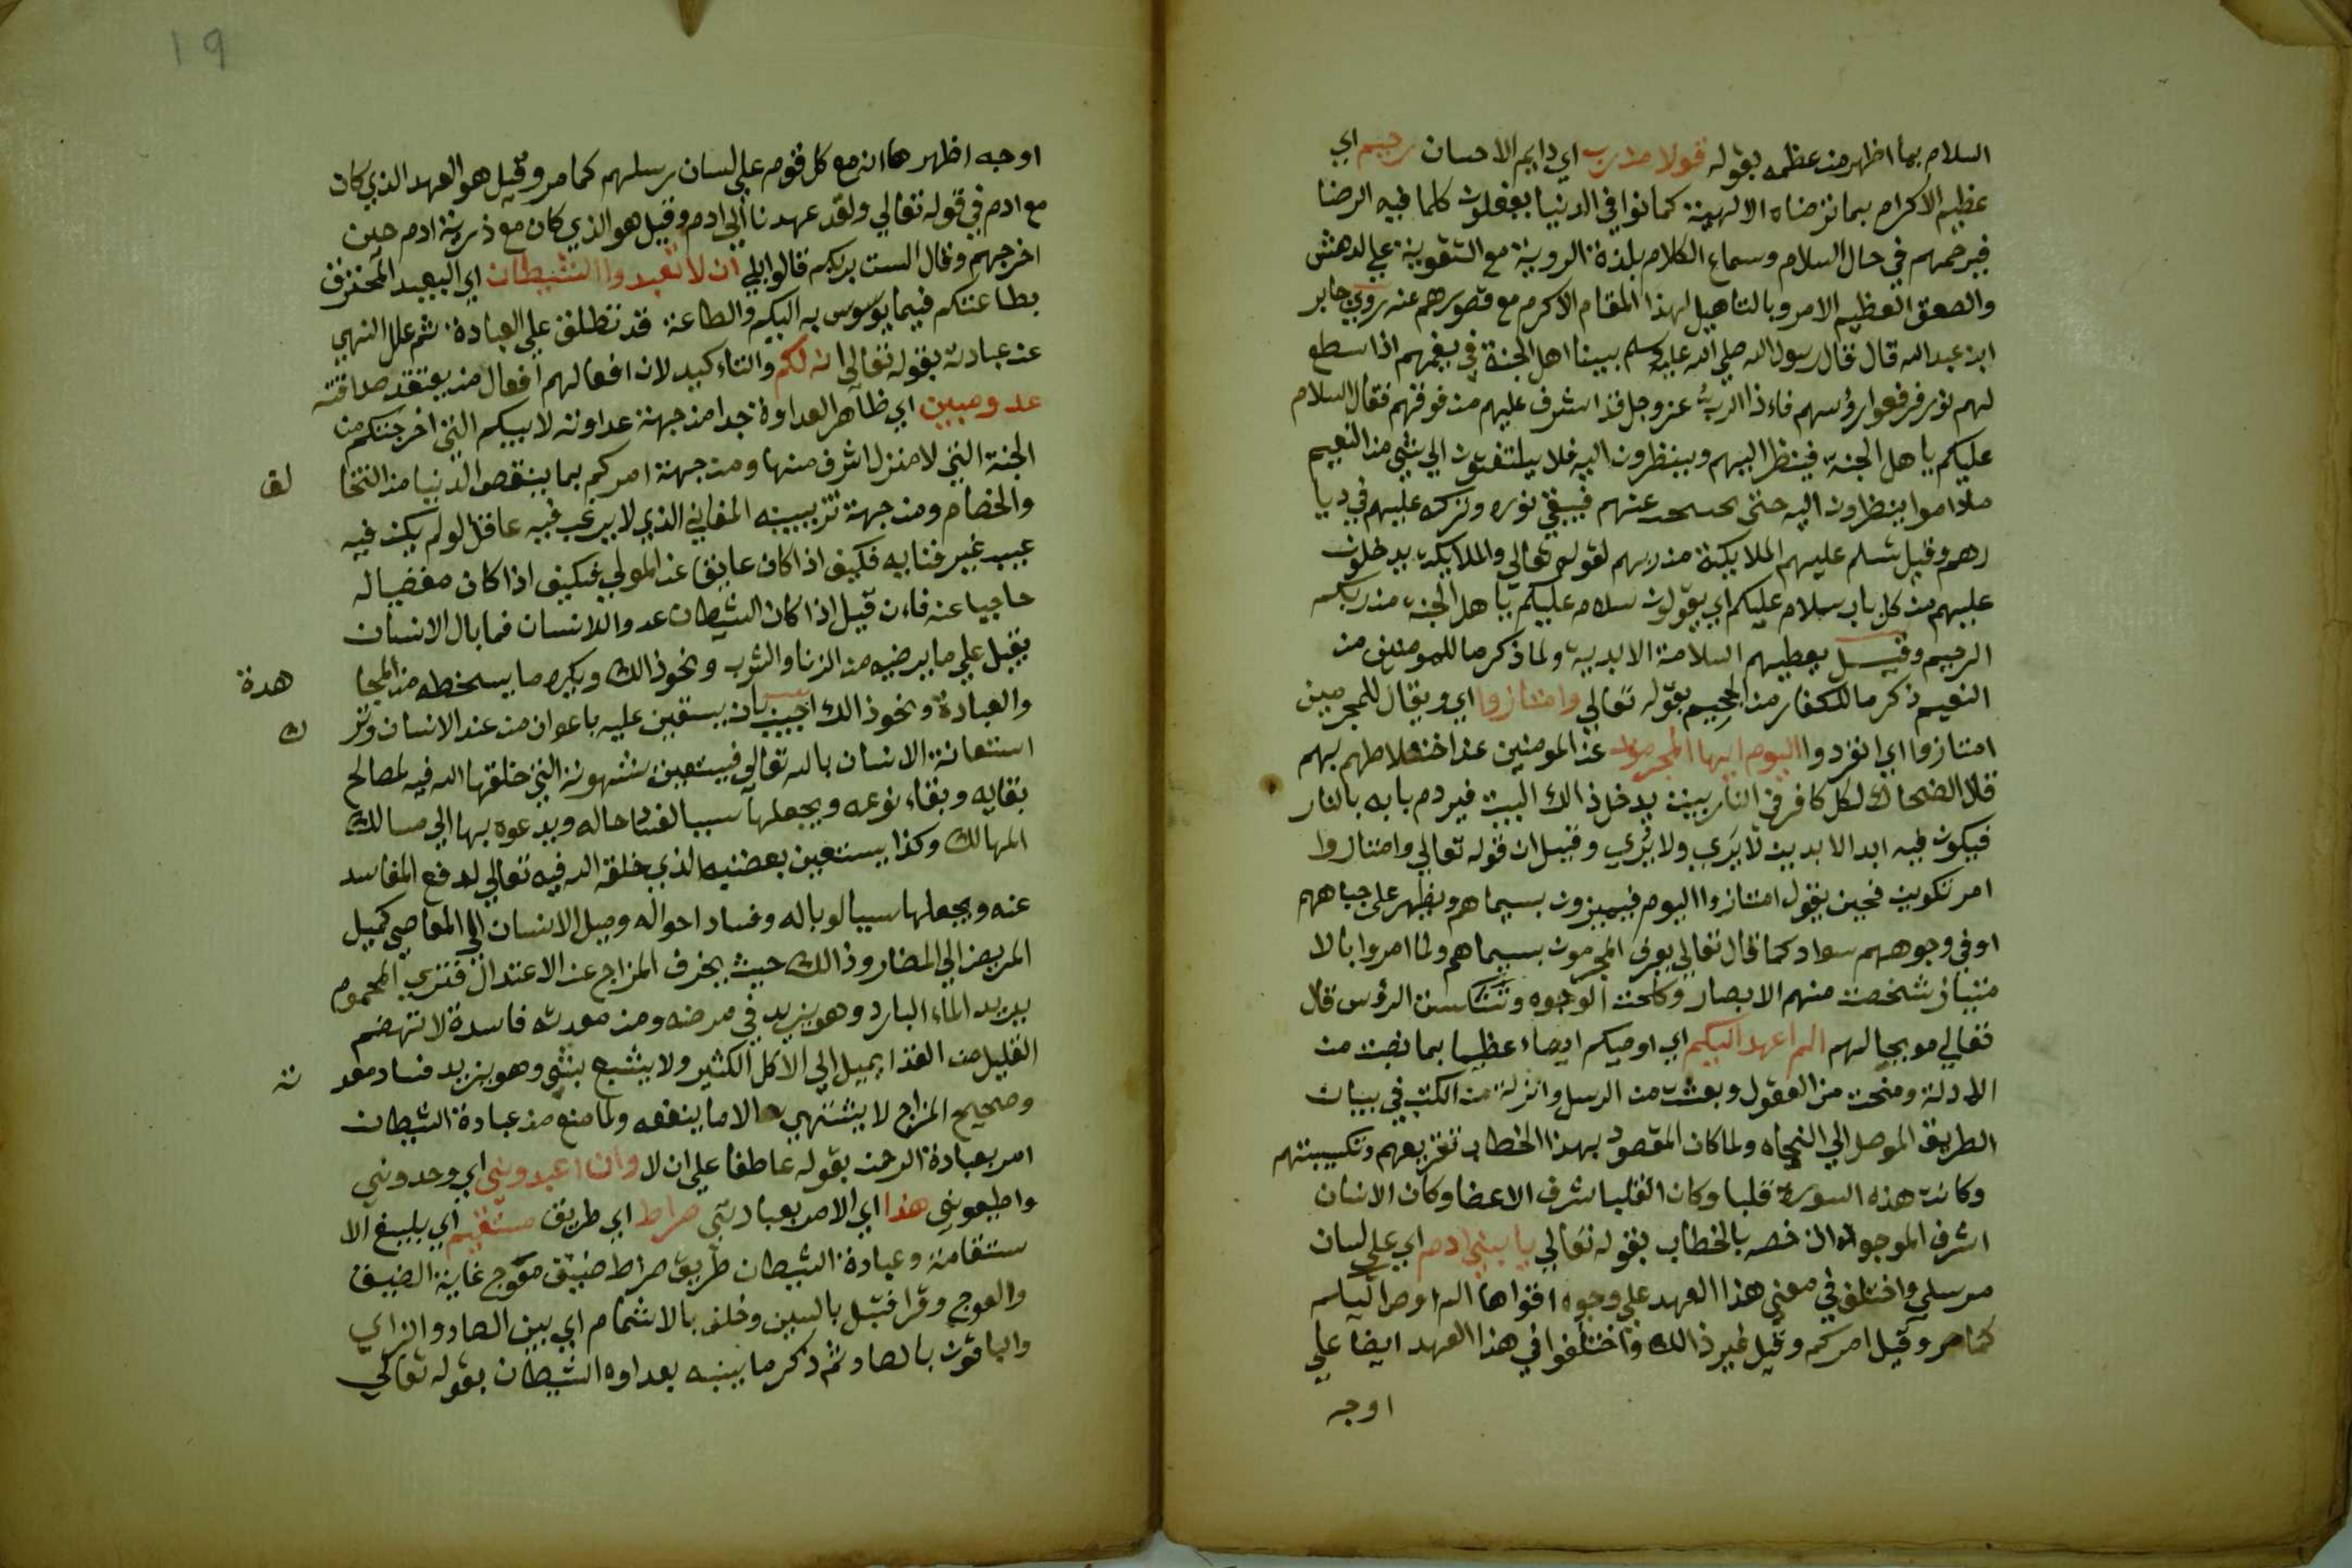 السلام بما اظهر من عظمه بقوله قولا من رب اي دايم الاحسان رحيم اي
عظيم الاكرام بما ترضاه الالهية كما نوا في الدنيا يفعلون كلما فيه الرضا
فيرحمهم في حال السلام وسماع الكلام بلذة الروية مع التقوية علي الدهش
والصعق العظيم الامر وبالتاهيل لهذا المقام الاكرم مع قصورهم عنه روي جابر
ابن عبد الله قال قال رسول الله صلي الله عليه وسلم بينا اهل الجنة في نعيمهم اذا سطع
لهم نور فرفعوا رؤسهم فاذا الرب عز وجل قد اشرف عليهم من فوقهم فقال السلام
عليكم يا هل الجنة فينظر اليهم وينظرون اليه فلا يلتفتون الي شي من النعيم
ماداموا ينظرون اليه حتى يحتجب عنهم فيبقي نوره وبركته عليهم في ديا
رهم وقيل تسلم عليهم الملايكة من ربهم لقوله تعالي والملايكة يدخلون
عليهم من كل باب سلام عليكم اي يقولون سلام عليكم يا هل الجنة من ربكم
الرحيم وقيل يعطيهم السلامة الابدية ولما ذكر ما للمومنين من
النعيم ذكر ما للكفار من الجحيم بقوله تعالي وامتازوا اي ويقال للمجرمين
امتازوا اي انفردوا اليوم ايها المجرمون عن المومنين عند اختلاطهم بهم
قال الضحاك لكل كافر في النار بيت يدخل ذالك البيت فيردم بابه بالنار
فيكون فيه ابد الابدين لا يَرَي ولا يُرَي وقيل ان قوله تعالي وامتازوا
امر تكوين فحين يقول امتازوا اليوم فيميزون بسيماهم ويظهر على جباههم
او في وجوههم سواد كما قال تعالي يعرف المجرمون بسيماهم ولما امروا بالا
متياز شخصت منهم الابصار وكلحت الوجوه وتنكست الرؤس قال
تعالي موبخا لهم الم اعهد اليكم اي اوصيكم ايصاء عظيما بما نصبت من
الادلة ومنحت من العقول وبعثت من الرسل وانزلت من الكتب في بيان
الطريق الموصل الي النجاه ولما كان المقصود بهذا الخطاب تقريعهم وتبكيتهم
وكانت هذه السورة قلبا وكان القلب اشرف الاعضا وكان الانسان
اشرف الموجودات خصه بالخطاب بقوله تعالي يا بني ادم اي علي لسان
مرسلي واختلف في معني هذا العهد علي وجوه اقواها الم اوص اليكم
كما مر وقيل امركم وقيل غير ذالك واختلفوا في هذا العهد ايضا علي
اوجه
19
اوجه اظهرها انه مع كل قوم علي لسان رسلهم كما مر وقيل هو العهد الذي كان
مع ادم في قوله تعالي ولقد عهدنا الي ادم وقيل هو الذي كان مع ذرية ادم حين
اخرجهم وقال الست بربكم قالوا بلي ان لا تعبدوا الشيطان اي البعيد المحترق
بطاعتكم فيما يوسوس به اليكم والطاعة قد تطلق علي العبادة ثم علل النهي
عن عبادته بقوله تعالي انه لكم والتاكيد لان افعالهم افعال من يعتقد صداقته
عدو مبين اي ظاهر العداوة جدا من جهة عداوته لابيكم التي اخرجتكم من
الجنة التي لا منزل اشرف منها ومن جهة امركم بما ينقص الدنيا من التخا لف
والخصام ومن جهة تزيينه الفاني الذي لا يرغب فيه عاقل لو لم يكن فيه
عيب غير فنايه فكيف اذا كان عايقا عن المولي فكيف اذا كان مغضبا له
حاجبا عنه فان قيل اذا كان الشيطان عدوا للانسان فما بال الانسان
يقبل علي ما يرضيه من الزنا والشرب ونحو ذالك ويكره ما يسخطه من المجا هدة
والعبادة ونحو ذالك اجيب بان يستعين عليه باعوان من عند الانسان وتر ك
استعانة الانسان بالله تعالي فيستعين بشهوته التي خلقها الله فيه لمصالح
بقايه وبقاء نوعه ويجعلها سببا لفساد حاله ويدعوه بها الي مسالك
المهالك وكذا يستعين بغضبه الذي خلقه الله فيه تعالي لدفع المفاسد
عنه ويجعلها سببا لوباله وفساد احواله وميل الانسان الي المعاصي كميل
المريض الي المضار وذالك حيث ينحرف المزاج عن الاعتدال فتري المحموم
يريد الماء البارد وهو يزيد في مرضه ومن معدته فاسدة لا تهضم
القليل من الغذا يميل الي الاكل الكثير ولا يشبع بشي وهو يزيد فساد معد ته
وصحيح المزاج لا يشتهي الا ما ينفعه ولما منع من عبادة الشيطان
امر بعبادة الرحمن بقوله عاطفا علي ان لا وان اعبدوني اي وحدوني
واطيعوني هذا اي الامر بعبادتي صراط اي طريق مستقيم اي بليغ الا
ستقامة وعبادة الشيطان طريق صراط ضيق معوج غاية الضيق
والعوج وقرا قنبل بالسين وخلف بالاشمام اي بين الصاد والزاي
والباقون بالصاد ثم ذكر ما ينبه بعداوه الشيطان بقوله تعالي